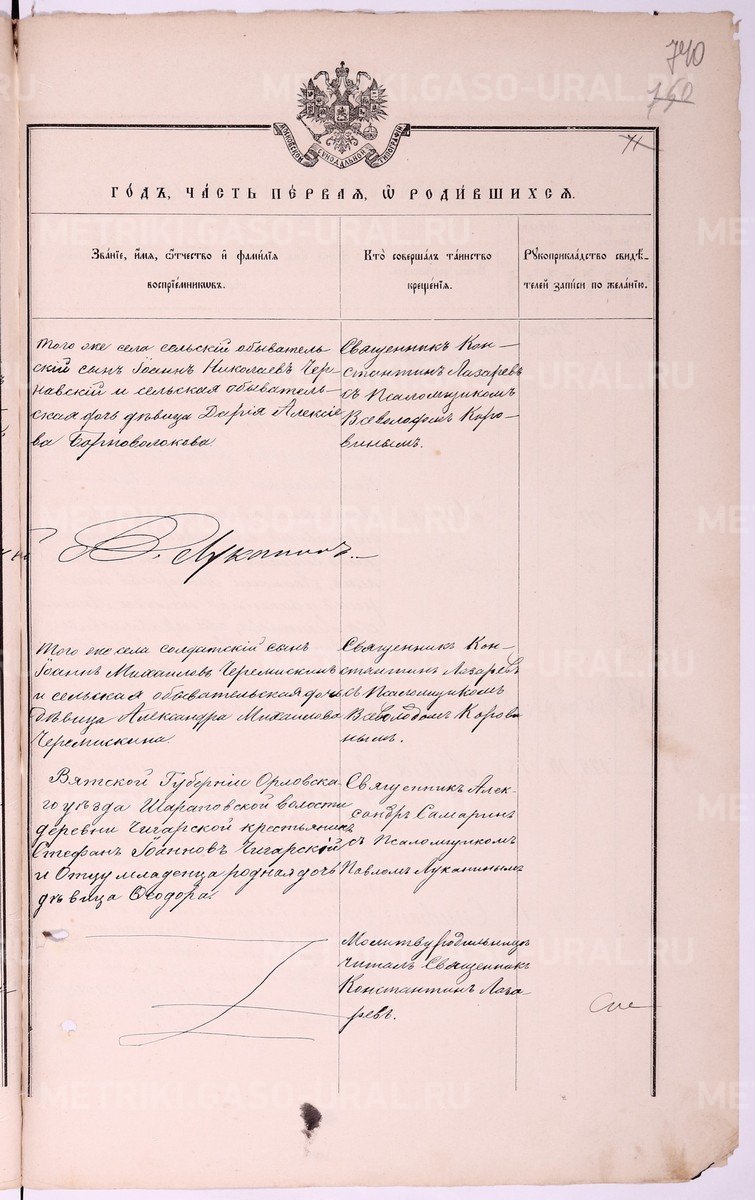 740
760
71
МОСКОВСКОЙ СѴНОДАЛЬНОЙ ТИПОГРАФІИ
ГО́ДЪ, ЧА́СТЬ ПЕ́РВАЯ, Ѿ РОДИ́ВШИХСЯ.
Зва́нїе, и́мя, ѻ҆́тчество и҆ фами́лїя
воспрїе́мниковъ.
Кто̀ соверша́лъ та́инство
креще́нїя.
Рꙋкоприкла́дство свидѣ́-
телей за́писи по жела́нїю.
Того же села сельскій обыватель-
скій сынъ Іоаннъ Николаевъ Чер-
навскій и сельская обыватель-
ская дочь дѣвица Дарія Алексіе
ва Борноволокова.
Священникъ Кон-
стантинъ Лазаревъ
съ Псаломщикомъ
Всеволодомъ Коро-
винымъ.
Лукапинъ
Того же села солдатскій сынъ
Іоаннъ Михаиловъ Черемискинъ
и сельская обывательская дочь
дѣвица Александра Михаилова
Черемискина.
Священникъ Кон-
стантинъ Лазаревъ
съ Псаломщикомъ
Всеволодомъ Корови
нымъ.
Вятской Губерніи Орловска-
го уѣзда Шараповской волости
деревни Чигарской крестьянинъ
Стефанъ Іоанновъ Чигарскій
и Отцу младенца родная дочь
дѣвица Ѳеодора.
Священникъ Алек-
сандръ Самаринъ
съ Псаломщикомъ
Павломъ Лукапинымъ
Молитву родильницѣ
читалъ Священникъ
Константинъ Лаза-
ревъ.
METRIKI.GASO-URAL.RU